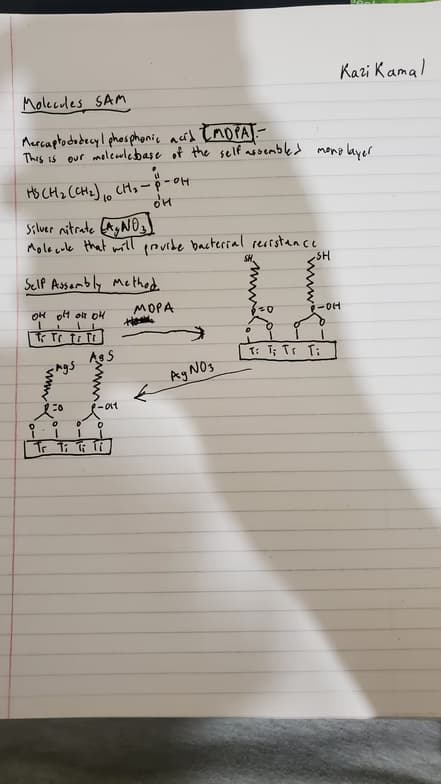 Kazi Kamal
Molecules SAM
Mercaptododecylphosphonic acid [MDPA]:-
This is our molecule base of the self assembled monolayer
HSCH2(CH2)10CH2-P-OH
O
OH
Silver nitrate [AgNO3]
Molecule that will provide bacterial resistance
Self Assembly Method
OH OH OH OH
Ti Ti Ti Ti
MDPA
SH SH
P=O P-OH
O O O O
Ti Ti Ti Ti
AgNO3
AgS AgS
P=O P-OH
O O O O
Ti Ti Ti Ti